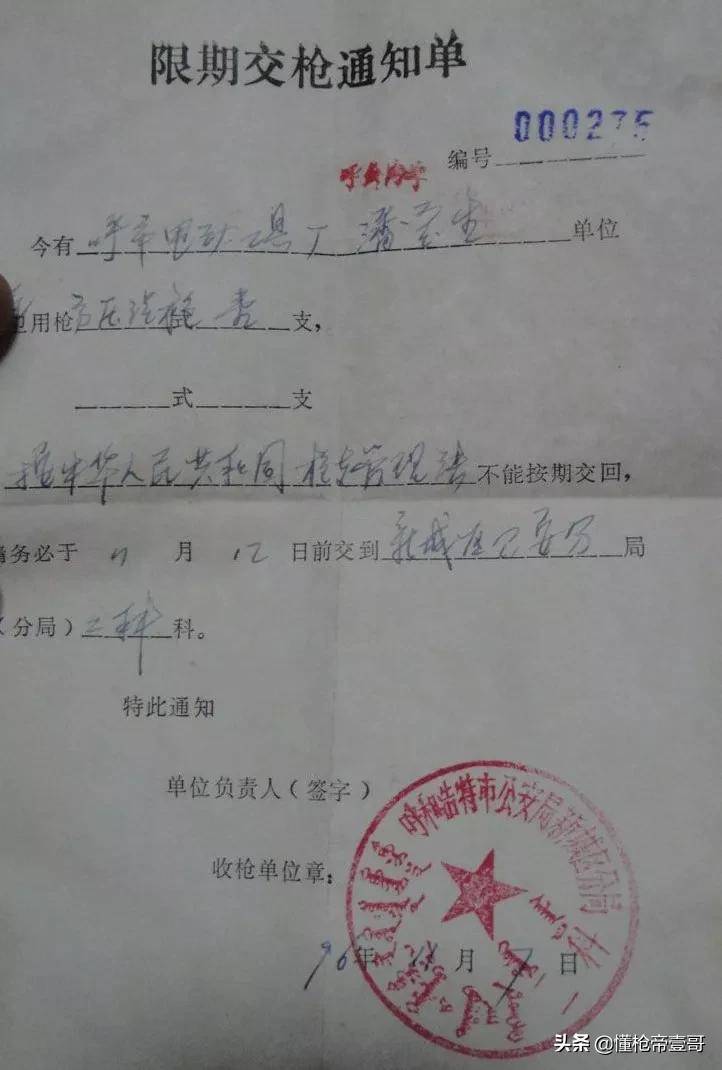 限期交枪通知单
编号 000275
今有呼市电动工具厂 潘 生 单位
用枪 高压汽枪 式 壹 支，
式 支
据中华人民共和国枪支管理法不能按期交回，
务必于 11 月 12 日前交到 新城区公安分 局
（分局）三科 科。
特此通知
单位负责人（签字）
收枪单位章：
呼和浩特市公安局新城区分局
96年 11 月 7 日
头条 @懂枪帝壹哥